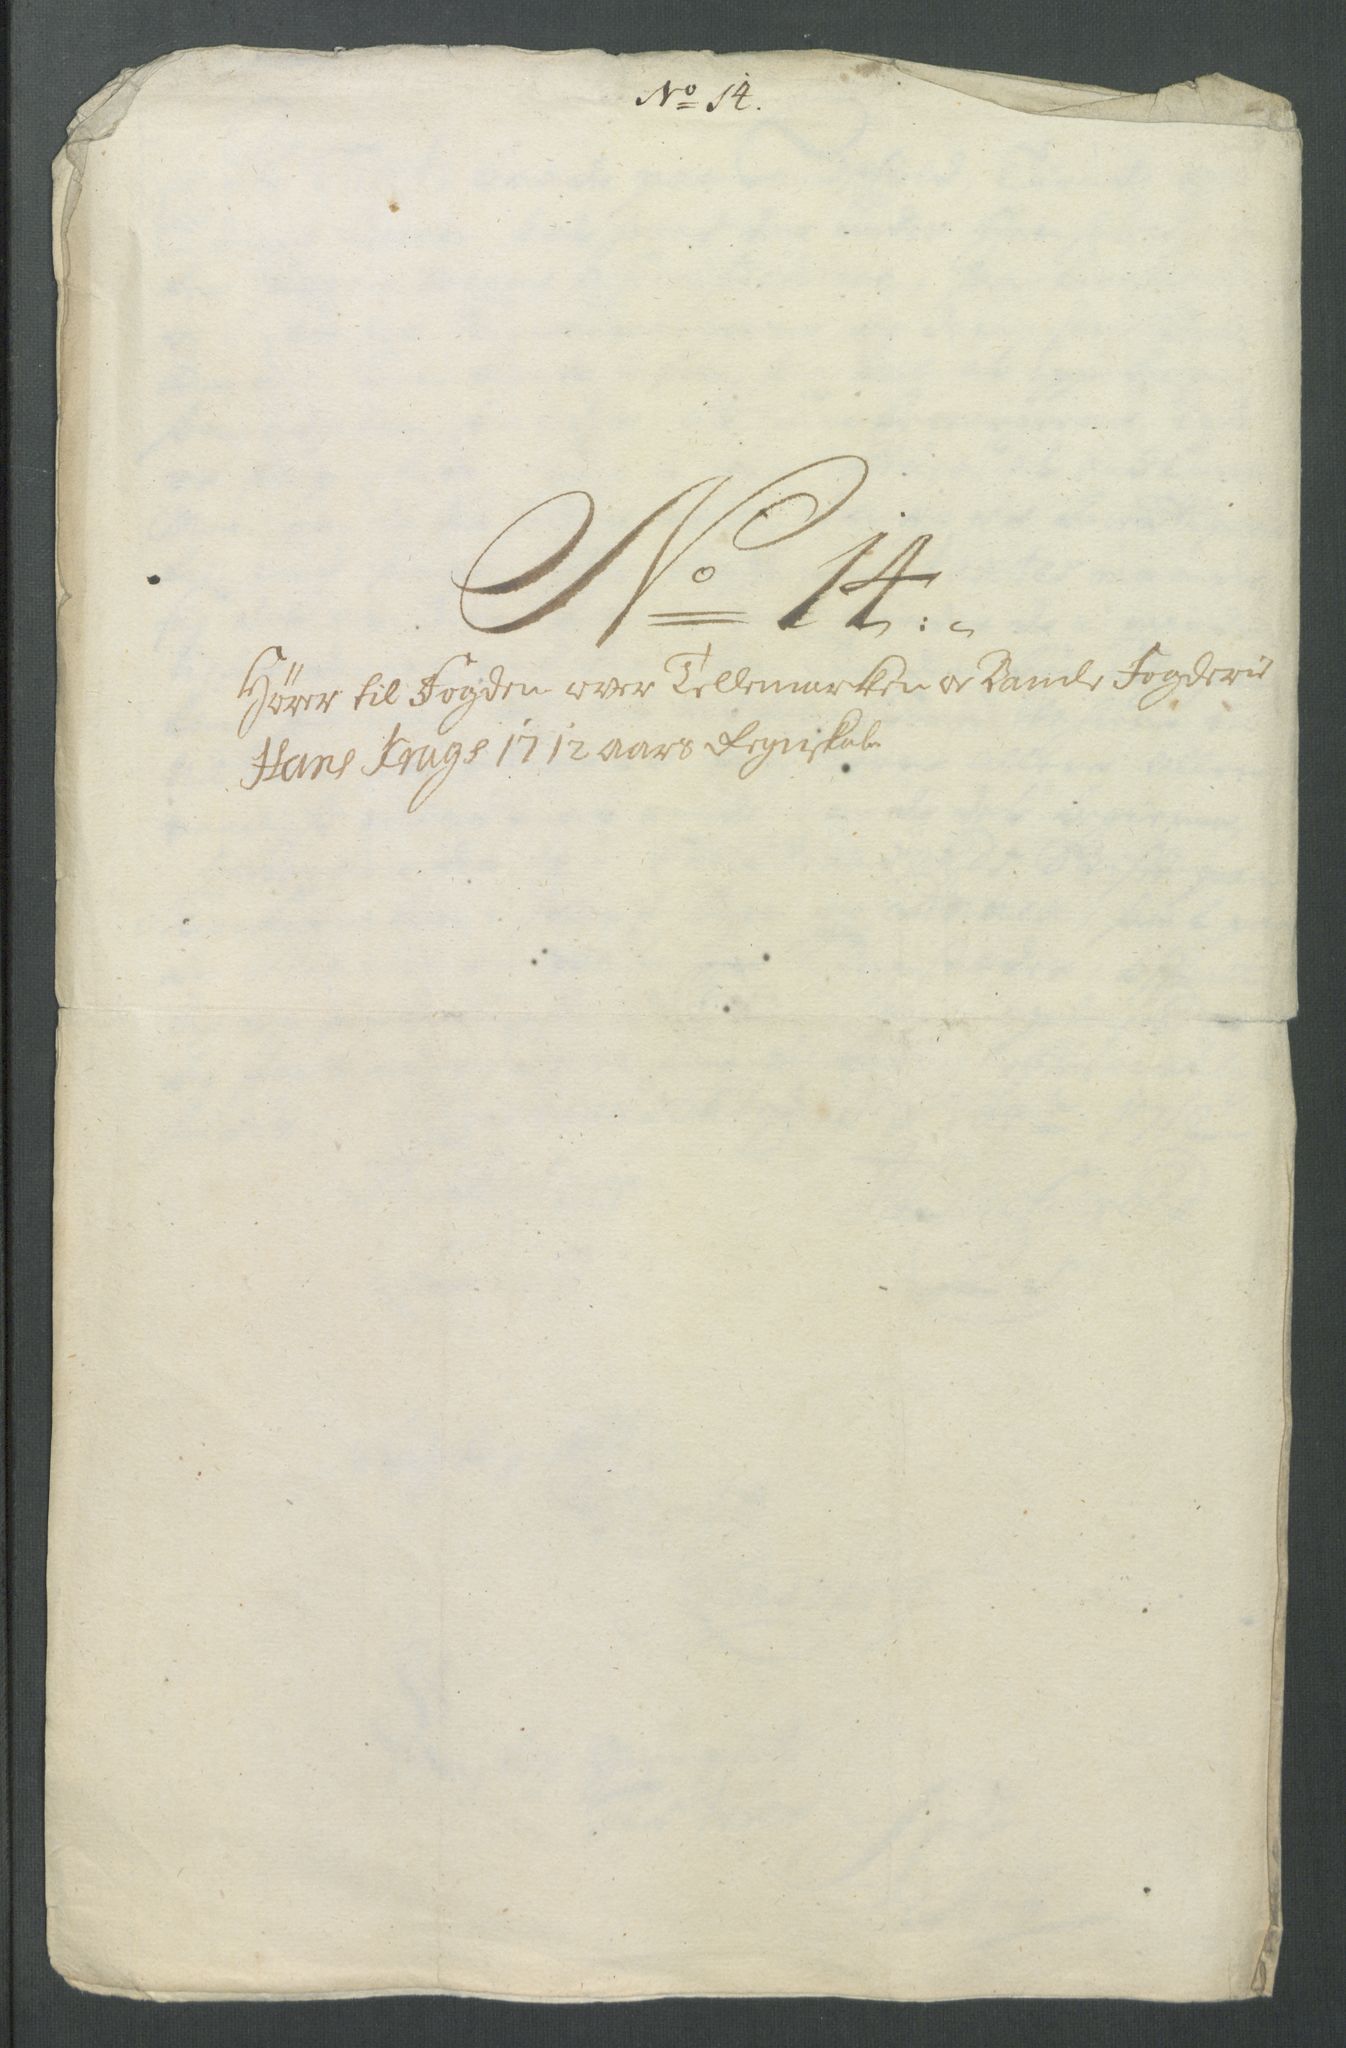 No 14.
No 14:
Hörer til Fogden over Tellemarken oc Bamle Fogderie
Hans Krags 1712 aars Regnskab